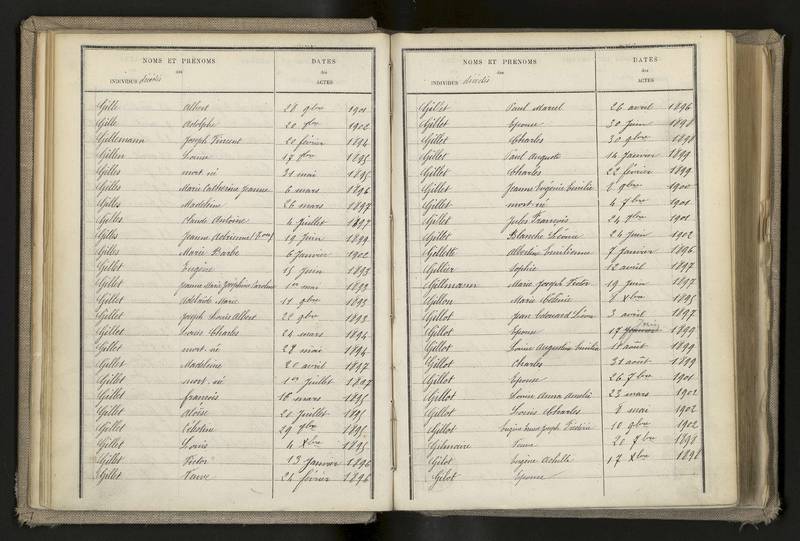 NOMS ET PRENOMS
des
INDIVIDUS décédés
DATES
des
ACTES
Gille Albert 28 9bre 1901
Gille Adolphe 20 7bre 1902
Gillemann Joseph Vincent 20 février 1894
Gillen Louise 17 7bre 1895
Gilles mort-né 31 mai 1895
Gilles Marie Catherine Jeanne 6 mars 1896
Gilles Madeleine 26 mars 1897
Gilles Claude Antoine 4 Juillet 1897
Gilles Jeanne Adrienne 19 Juin 1899
Gilles Marie Barbe 6 Janvier 1902
Gillet Eugène 15 Juin 1893
Gillet Jeanne Marie Joséphine Caroline 1er mai 1893
Gillet Adélaïde Marie 11 9bre 1893
Gillet Joseph Louis Albert 22 9bre 1893
Gillet Louis Charles 24 mars 1894
Gillet mort-né 28 mai 1894
Gillet Madeleine 20 avril 1897
Gillet mort-né 1er Juillet 1897
Gillet François 16 mars 1895
Gillet Aloïse 20 Juillet 1895
Gillet 29 9bre 1895
Gillet Louis 4 Xbre 1895
Gillet Victor 13 Janvier 1896
Gillet Veuve 24 février 1896
NOMS ET PRENOMS
des
INDIVIDUS décédés
DATES
des
ACTES
Gillet Paul Marcel 26 avril 1896
Gillot Epouse 30 Juin 1898
Gillot Charles 30 9bre 1898
Gillet Paul Auguste 14 Janvier 1899
Gillet Charles 22 février 1899
Gillet Jeanne Eugénie Emilie 8 9bre 1900
Gillet mort-né 4 7bre 1901
Gillet Jules François 24 7bre 1901
Gillet Blanche Léonie 24 Juin 1902
Gillette Albertine Emilienne 7 Janvier 1896
Gillier Sophie 12 avril 1897
Gillmann Marie Joseph Victor 19 Juin 1897
Gillon Marie 8 Xbre 1895
Gillot Jean Edouard Léon 3 avril 1897
Gillot Epouse 17 1899
Gillot Louise Augustine Emilie 18 août 1899
Gillot Charles 31 août 1899
Gillot Epouse 26 7bre 1901
Gillot Louise Anna Amélie 23 mars 1902
Gillot Louis Charles 8 mai 1902
Gillot Eugène Joseph Frédéric 10 9bre 1902
Gilmaire Veuve 20 7bre 1898
Gilot Eugène Achille 17 Xbre 1898
Gilot Epouse